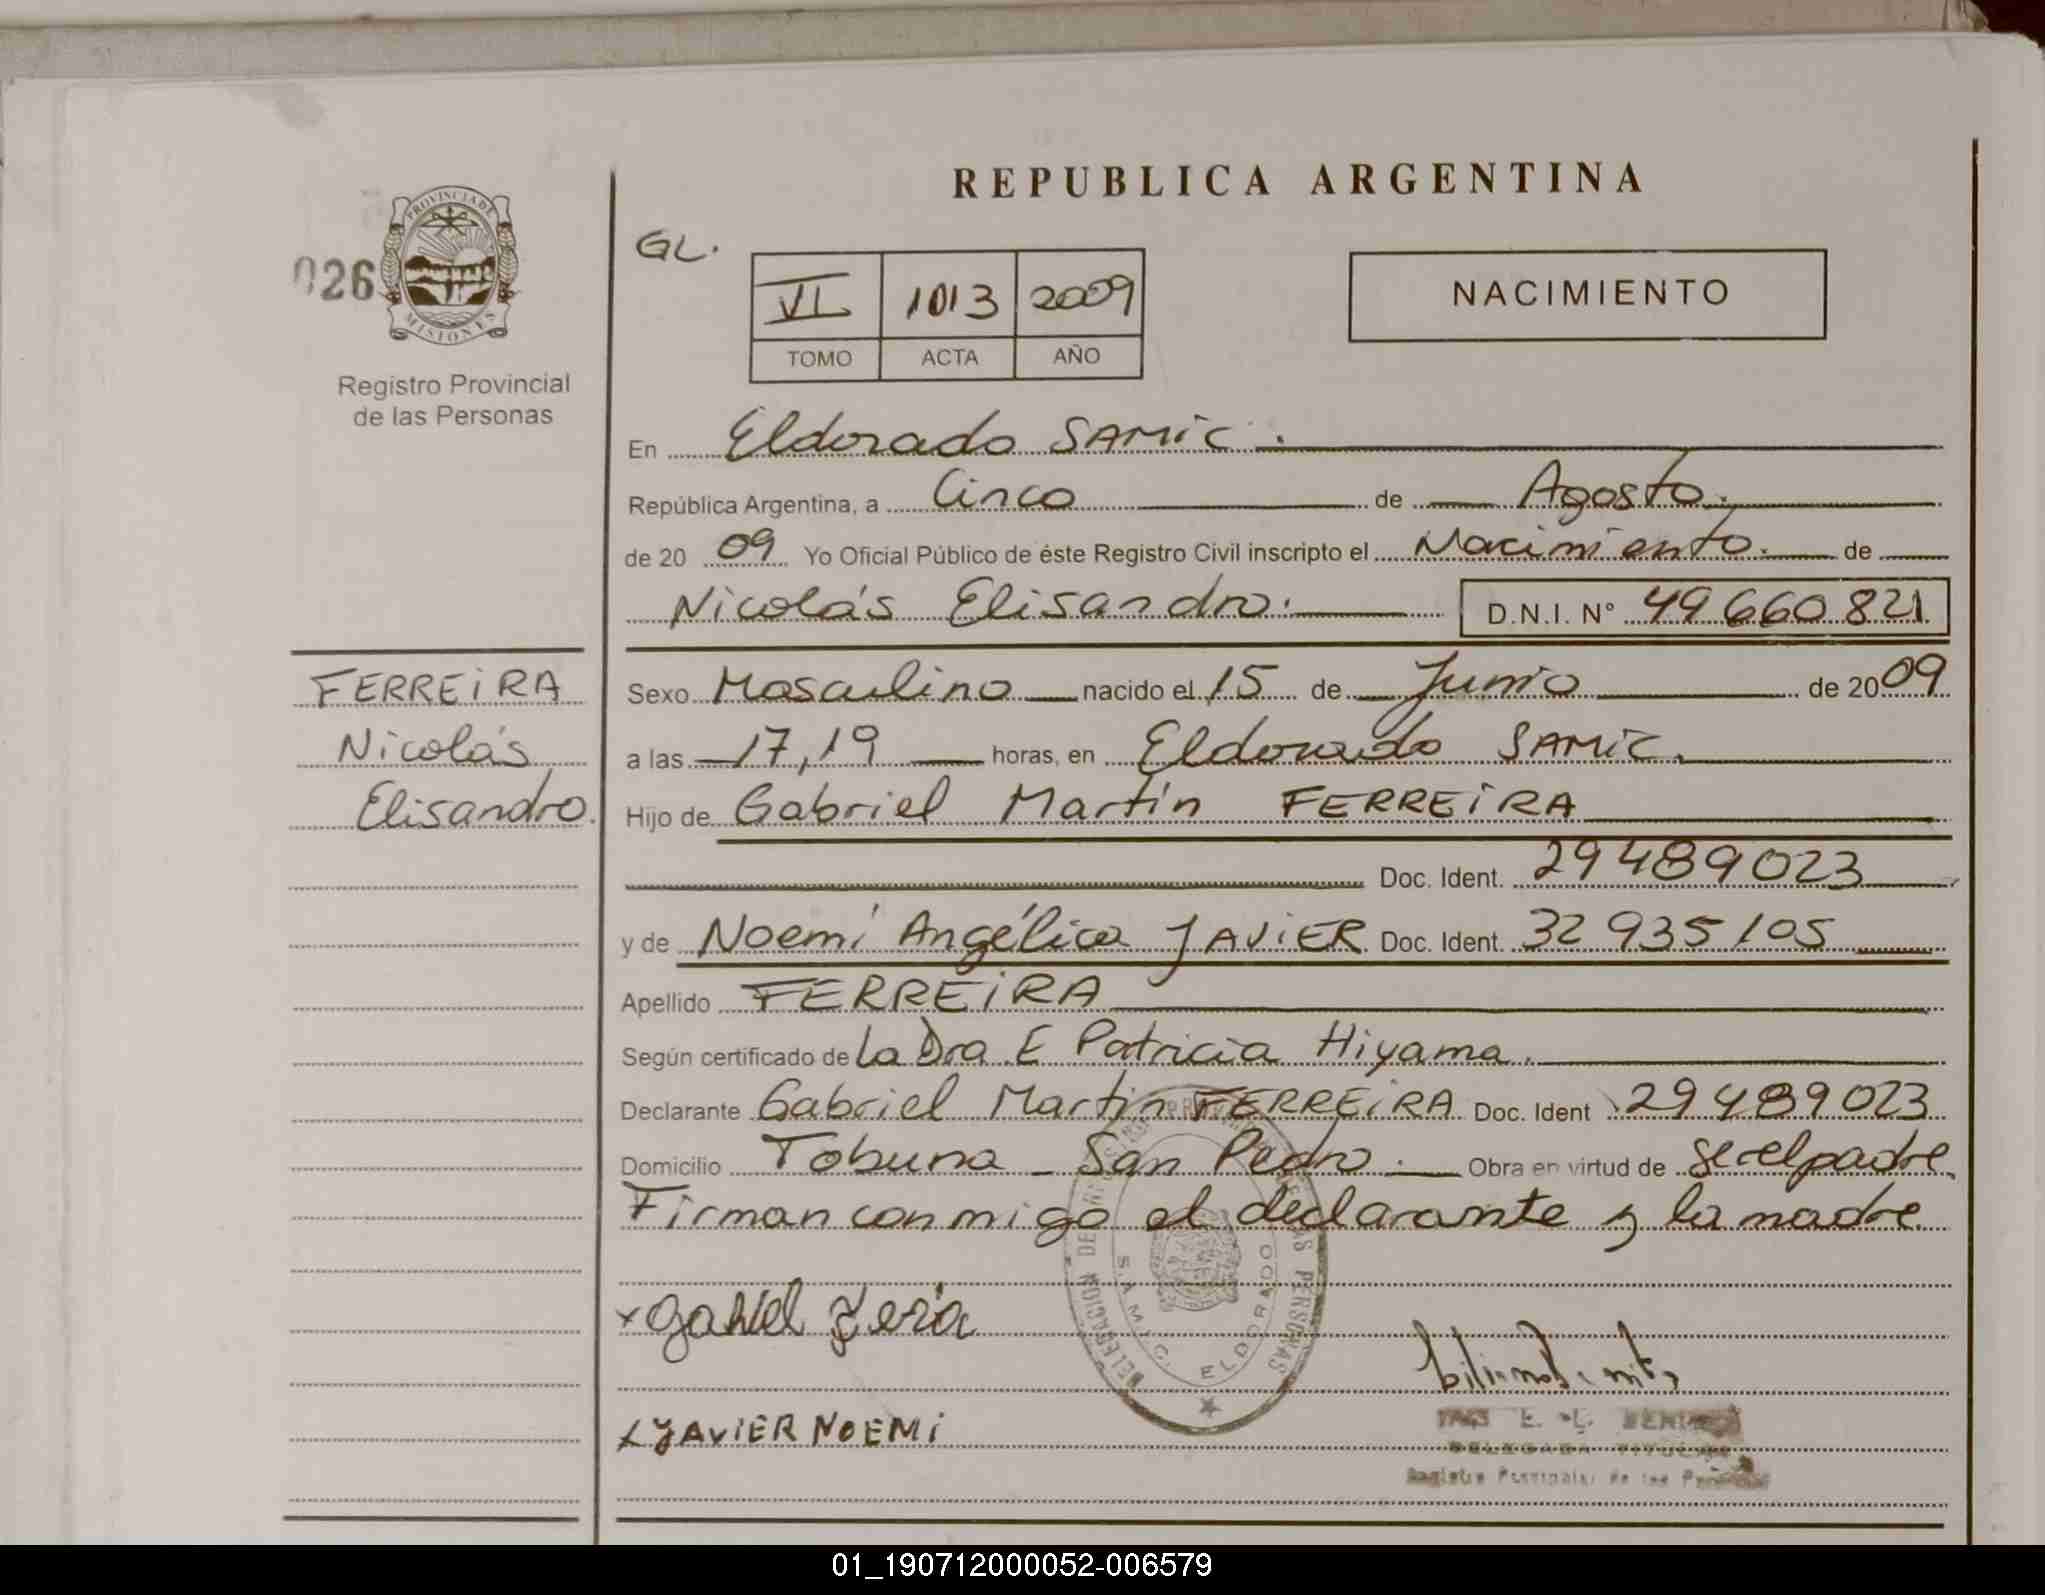 REPUBLICA ARGENTINA
PROVINCIA DE
MISIONES
026
Registro Provincial
de las Personas
GL.
VI 1013 2009
TOMO ACTA AÑO
NACIMIENTO
En Eldorado SAMIC.
República Argentina, a Cinco de Agosto.
de 20 09 Yo Oficial Público de éste Registro Civil inscripto el Nacimiento. de
Nicolás Elisandro. D.N.I. N° 49660821
FERREIRA
Nicolás
Elisandro.
Sexo Masculino nacido el 15 de Junio de 2009
a las 17,19 horas, en Eldorado SAMIC.
Hijo de Gabriel Martín FERREIRA
Doc. Ident. 29489023
y de Noemí Angélica JAVIER Doc. Ident. 32935105
Apellido FERREIRA
Según certificado de La Dra E Patricia Hiyama.
Declarante Gabriel Martin FERREIRA Doc. Ident 29489023
Domicilio Tobuna - San Pedro. Obra en virtud de ser el padre
Firman conmigo el declarante y la madre
DELEGACION DE LAS PERSONAS
S.A.M.I.C. ELDORADO
x JAVIER NOEMI
DELEGADA TITULAR
Registro Provincial de las Personas
01_190712000052-006579